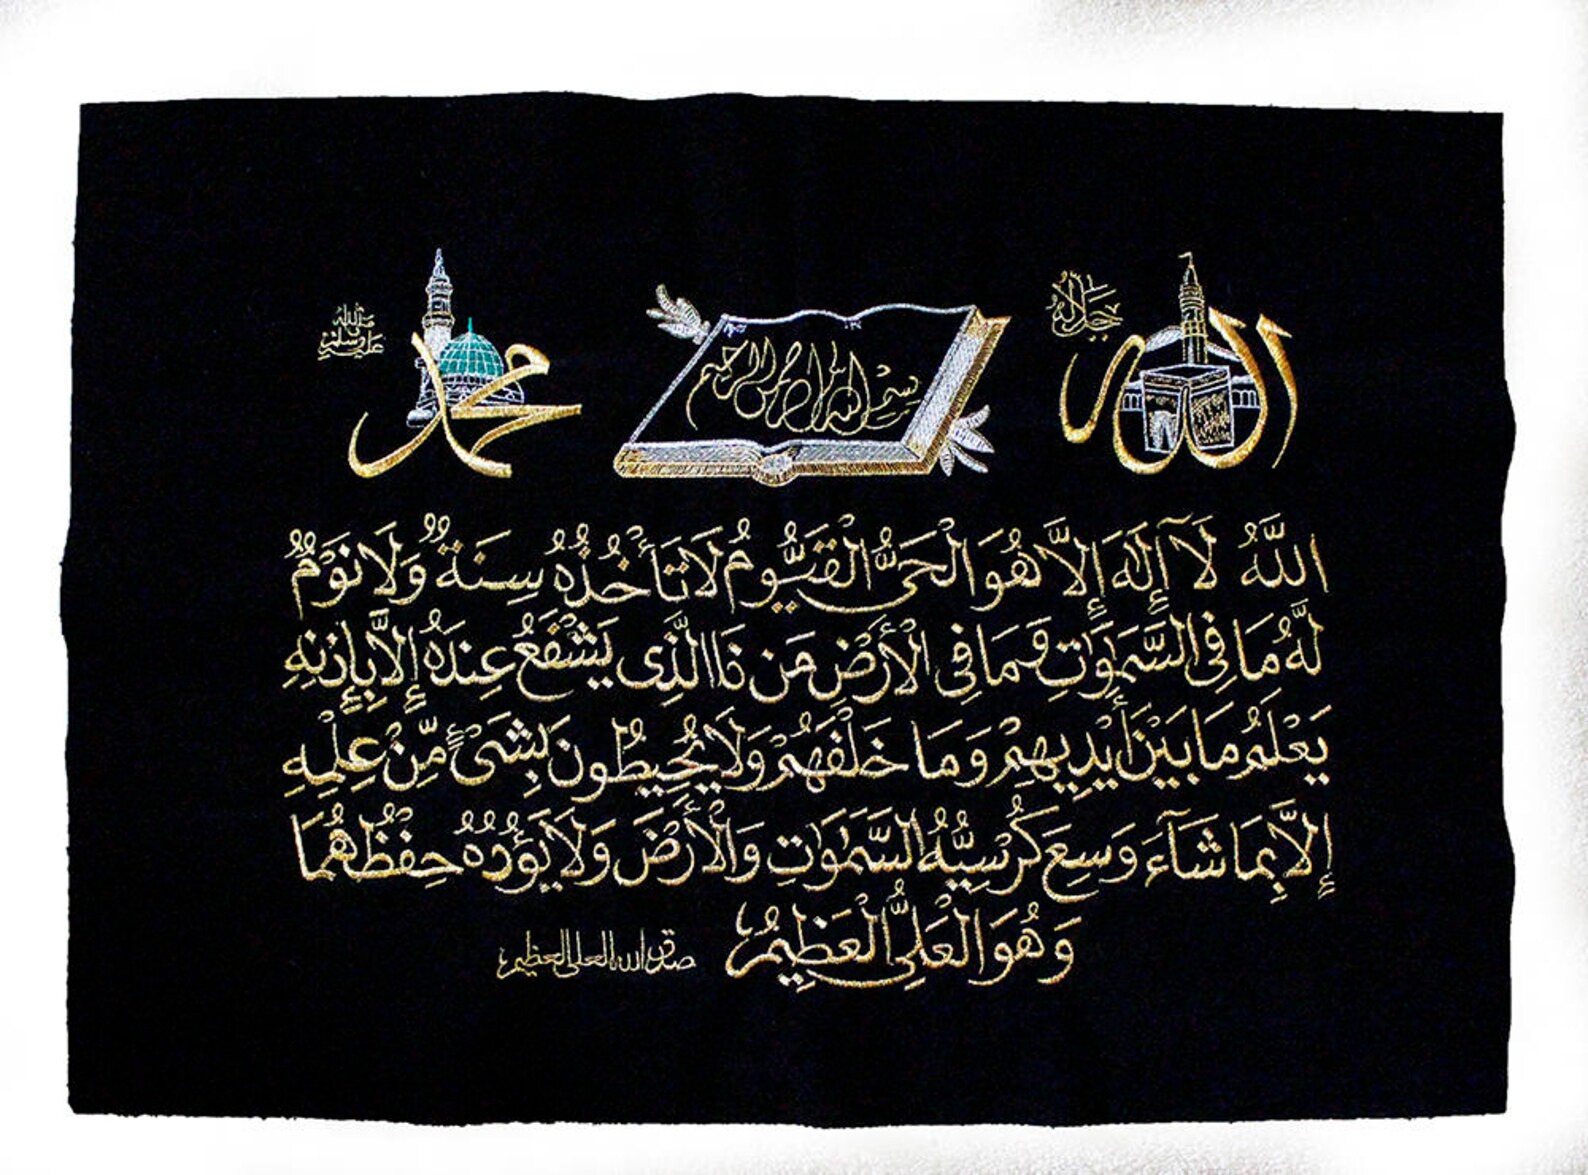 الله
جل جلاله
بسم الله الرحمن الرحيم
محمد
صلى الله عليه وسلم
اللَّهُ لَا إِلَٰهَ إِلَّا هُوَ الْحَيُّ الْقَيُّومُ لَا تَأْخُذُهُ سِنَةٌ وَلَا نَوْمٌ
لَّهُ مَا فِي السَّمَوَاتِ وَمَا فِي الْأَرْضِ مَن ذَا الَّذِي يَشْفَعُ عِندَهُ إِلَّا بِإِذْنِهِ
يَعْلَمُ مَا بَيْنَ أَيْدِيهِمْ وَمَا خَلْفَهُمْ وَلَا يُحِيطُونَ بِشَيْءٍ مِّنْ عِلْمِهِ
إِلَّا بِمَا شَآءَ وَسِعَ كُرْسِيُّهُ السَّمَوَاتِ وَالْأَرْضَ وَلَا يَؤُدُهُ حِفْظُهُمَا
وَهُوَ الْعَلِيُّ الْعَظِيمُ صدق الله العلي العظيم